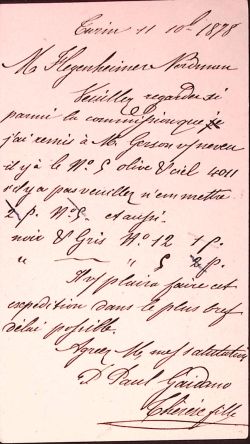 Turin 11 10bre 1878
M Hegenheimer Nordman
Veuillez regarder si
parmi la commission que je
j'ai remis à M. Gerson v/neveu
il y à le No. 5 olive & ciel 4011
s'il y a pas veuillez n'en mettre
2 p. No 5. et aussi
noir & Gris No 12 1 p.
" " 5 2 p.
Il v/ plaira faire cet
expedition dans le plus bref
délai possible.
Agreez M mes salutations
D Paul Gaidano
Thérèse fille